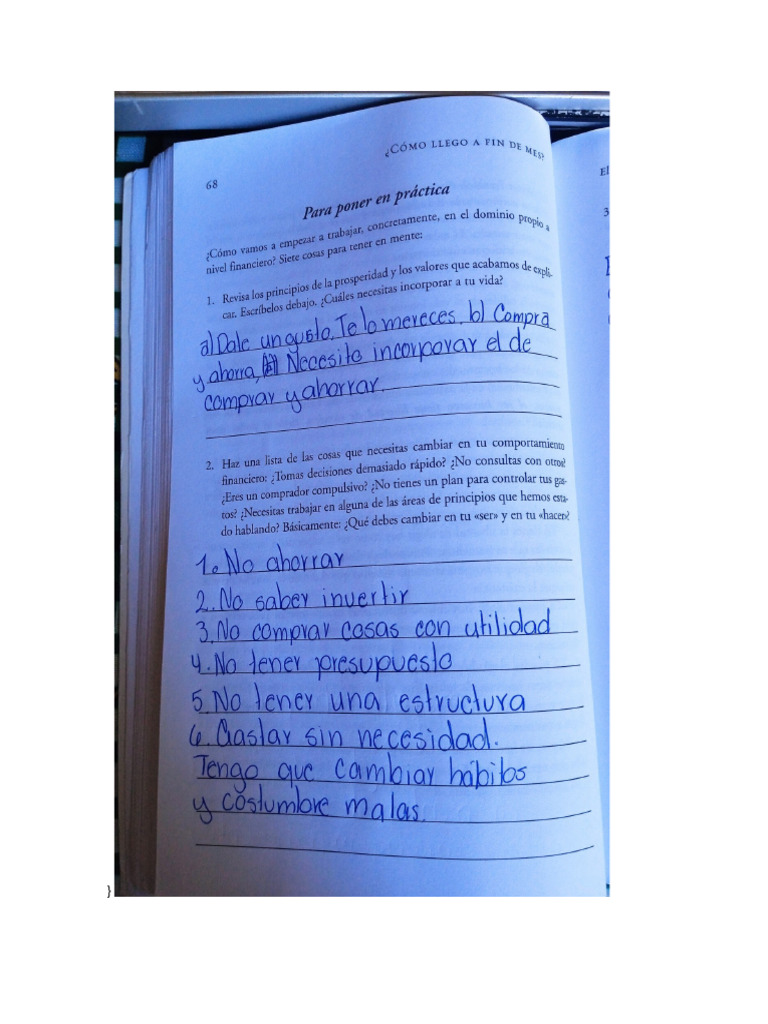 ¿CÓMO LLEGO A FIN DE MES?
68
Para poner en práctica
¿Cómo vamos a empezar a trabajar, concretamente, en el dominio propio a
nivel financiero? Siete cosas para tener en mente:
1. Revisa los principios de la prosperidad y los valores que acabamos de expli-
car. Escríbelos debajo. ¿Cuáles necesitas incorporar a tu vida?
a) Dale un gusto. Te lo mereces. b) Compra
y ahorra, Necesito incorporar el de
comprar y ahorrar.
2. Haz una lista de las cosas que necesitas cambiar en tu comportamiento
financiero: ¿Tomas decisiones demasiado rápido? ¿No consultas con otros?
¿Eres un comprador compulsivo? ¿No tienes un plan para controlar tus gas-
tos? ¿Necesitas trabajar en alguna de las áreas de principios que hemos esta-
do hablando? Básicamente: ¿Qué debes cambiar en tu «ser» y en tu «hacer»?
1. No ahorrar
2. No saber invertir
3. No comprar cosas con utilidad
4. No tener presupuesto
5. No tener una estructura
6. Gastar sin necesidad.
Tengo que cambiar hábitos
y costumbre malas.
El
3
}